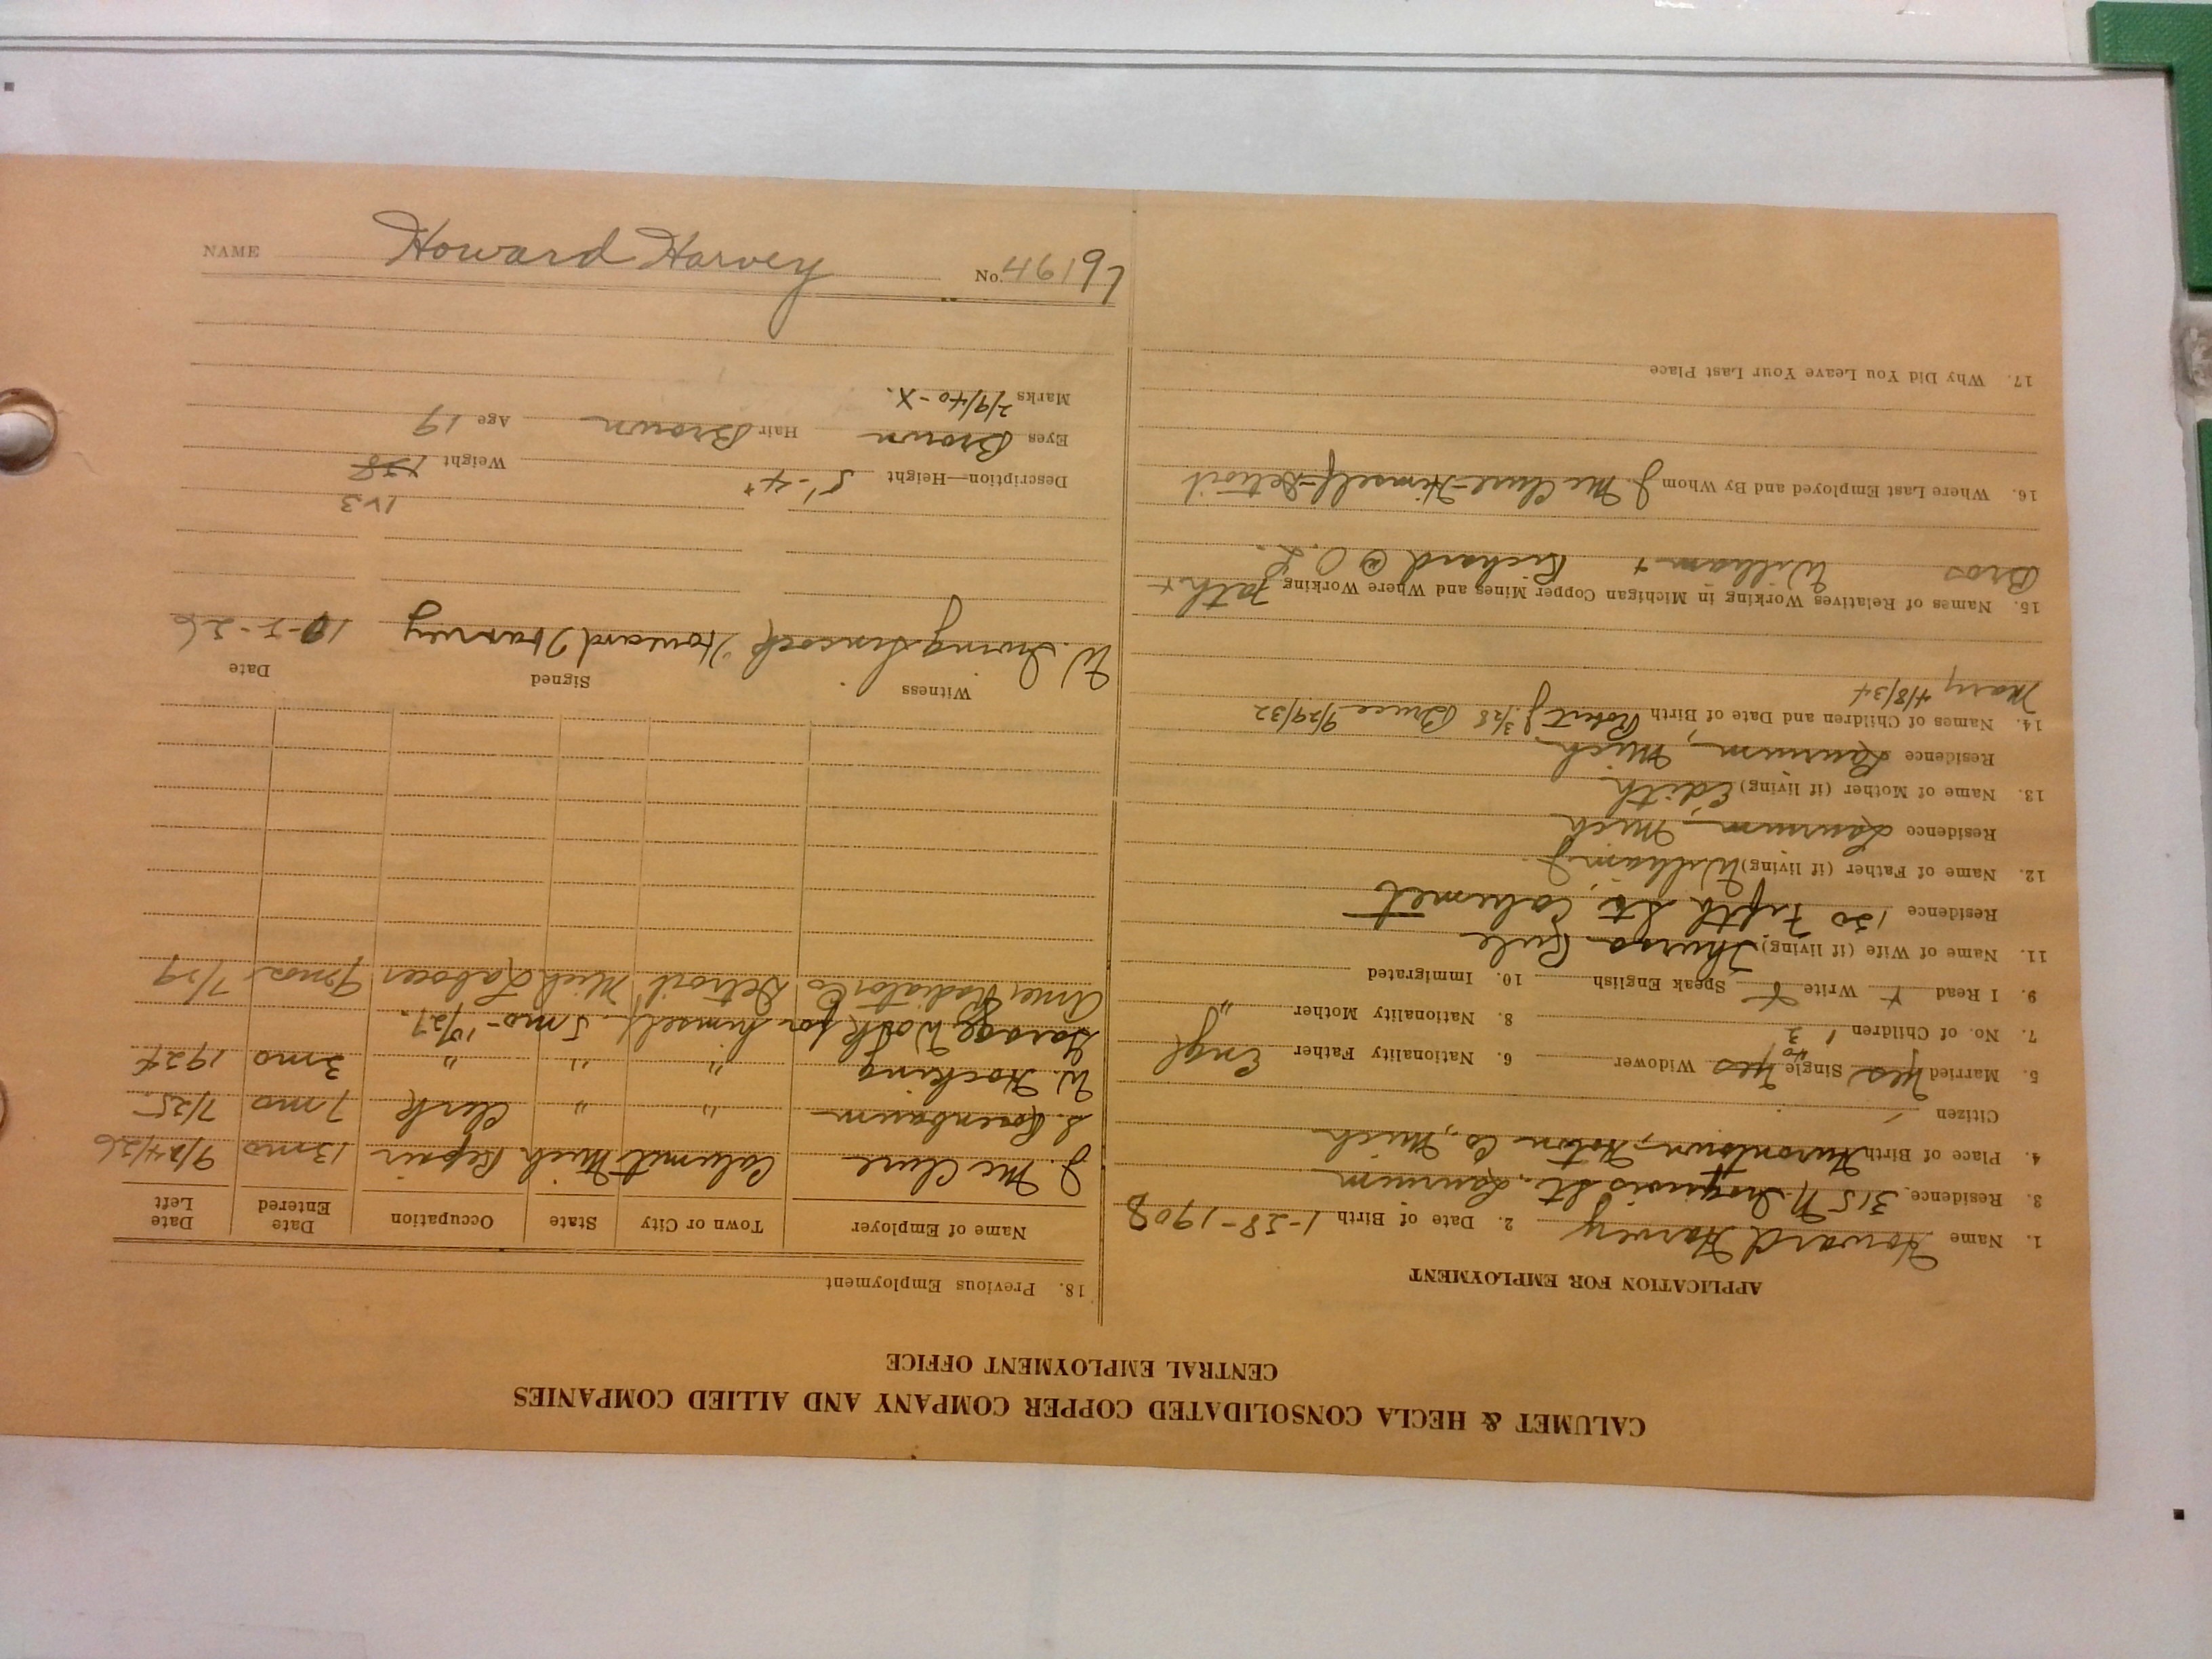 CALUMET & HECLA CONSOLIDATED COPPER COMPANY AND ALLIED COMPANIES
CENTRAL EMPLOYMENT OFFICE
APPLICATION FOR EMPLOYMENT
1. Name Howard Harvey 2. Date of Birth 1-28-1908
3. Residence 315 N. Iroquois St., Laurium
4. Place of Birth Hurontown, Hoton Co, Mich
Citizen
5. Married Yes Single Yes Widower 6. Nationality Father Engl
7. No. of Children 1 3 8. Nationality Mother "
9. I Read Write Speak English 10. Immigrated
11. Name of Wife (if living) Thursa Rule
Residence 120 Fifth St. Calumet
12. Name of Father (if living) William J.
Residence Laurium, Mich
13. Name of Mother (if living) Edith
Residence Laurium, Mich.
14. Names of Children and Date of Birth Robert J. 3/28 Bruce 9/29/32
Mary 4/8/34
15. Names of Relatives Working in Michigan Copper Mines and Where Working Fath +
Bros William + Richard @ O.L.
16. Where Last Employed and By Whom J. McClure-Himself-Detroit
17. Why Did You Leave Your Last Place
18. Previous Employment
Name of Employer Town or City State Occupation Date Entered Date Left
J. McClure Calumet Mich Repair 13 mo 9/24/26
S. Rosenbaum " " Clerk 7 mo 7/25
W. Hocking " " " 3 mo 1924
Garage Work for himself 5 mo - 10/27.
Amer Radiator Co Detroit Mich Laborer 9 mos 7/29
Witness Signed Date
W. Irving Sincock Howard Harvey 10-5-26
123
Description—Height 5'-4" Weight 138
Eyes Brown Hair Brown Age 19
Marks 2/9/40-X.
NAME Howard Harvey No. 46197